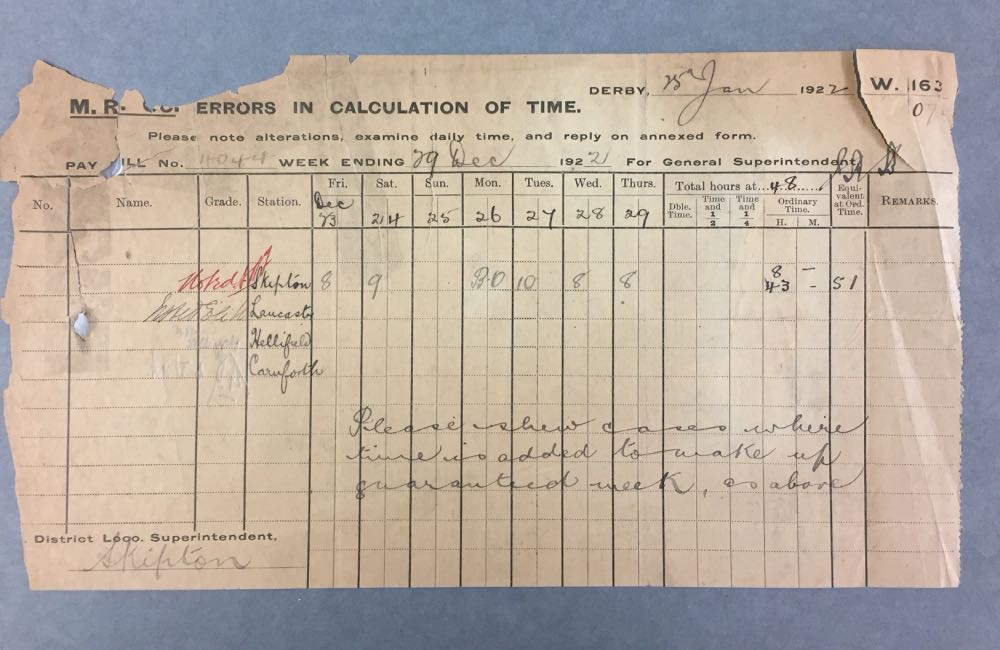 DERBY, 15 Jan 1922 W. 163
M. R. Co. ERRORS IN CALCULATION OF TIME.
Please note alterations, examine daily time, and reply on annexed form.
PAY BILL No. WEEK ENDING 29 Dec 1922 For General Superintendent,
No. Name. Grade. Station. Fri. Sat. Sun. Mon. Tues. Wed. Thurs. Total hours at...48...... Equivalent at Ord. Time. REMARKS.
Dec 23 24 25 26 27 28 29 Dble. Time. Time and 1/2 Time and 1/4 Ordinary Time. H. M.
8 –
Skipton 8 9 B.O 10 8 8 43 – 51
Lancaster
Hellifield
Carnforth
Please shew cases where
time is added to make up
guaranteed week, as above
District Loco. Superintendent,
Skipton